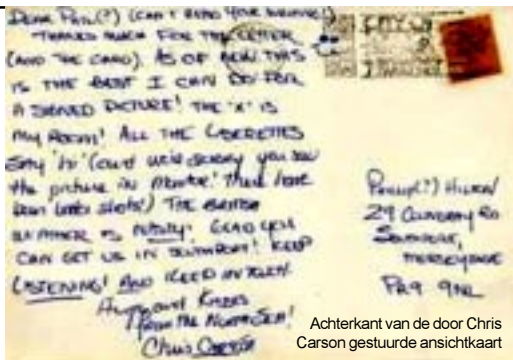 Dear Phil(?) (can't read your writing!)
Thanks much for the letter
(and the card). As of now this
is the best I can do for
a signed picture! The 'X' is
my room! All the Liberettes
say 'hi' (and we're sorry you saw
the picture in Monitor! There have
been better shots!) The British
weather is nutsy. Glad you
can get us in Southport! Keep
listening! And keep in touch
and Kisses
from the North Sea!
Chris Carson
Philip(?) Hilton
29 Rd
Southport,
Merseyside
PR9 9NR
Achterkant van de door Chris
Carson gestuurde ansichtkaart